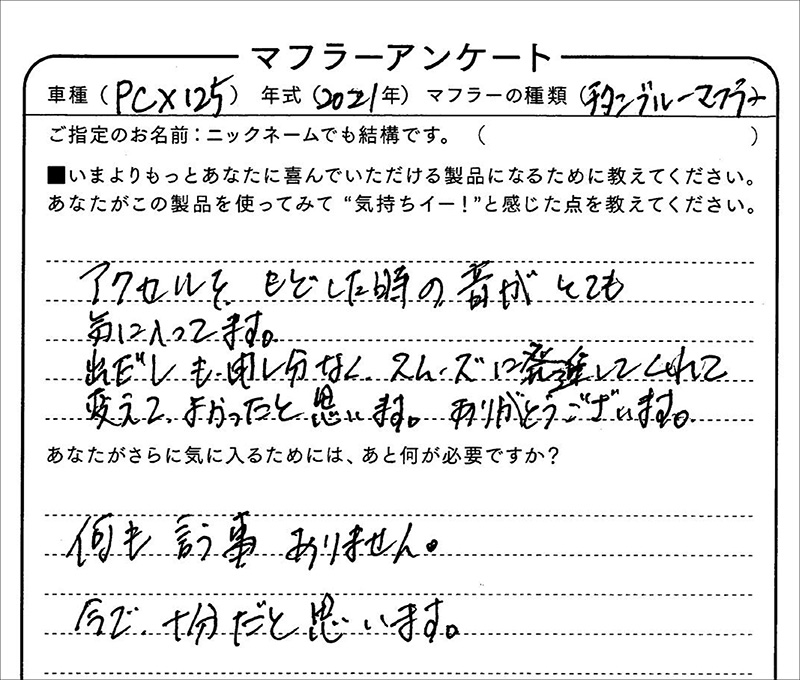 マフラーアンケート
車種（PCX125） 年式（2021年） マフラーの種類（チタンブルーマフラー
ご指定のお名前：ニックネームでも結構です。（ ）
■いまよりもっとあなたに喜んでいただける製品になるために教えてください。
あなたがこの製品を使ってみて “気持ちイー！”と感じた点を教えてください。
アクセルを、もどした時の音がとても
気に入ってます。
出だしも申し分なく、スムーズに発進してくれて
変えて、よかったと思います。ありがとうございます。
あなたがさらに気に入るためには、あと何が必要ですか？
何も言う事ありません。
今で、十分だと思います。